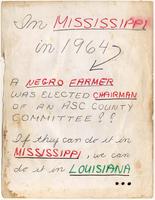 In MISSISSIPPI
in 1964
A NEGRO FARMER
WAS ELECTED CHAIRMAN
OF AN ASC COUNTY
COMMITTEE !!
If they can do it in
MISSISSIPPI, we can
do it in LOUISIANA
...